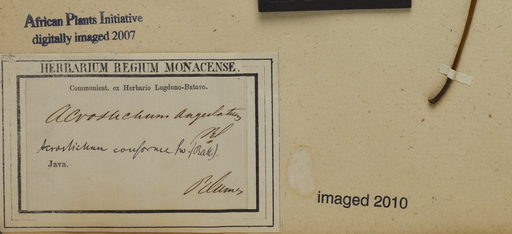 African Plants Initiative
digitally imaged 2007
HERBARIUM REGIUM MONACENSE.
Communicat. ex Herbario Lugduno-Batavo.
Acrostichum angulatum
Bl
Acrostichum conforme Sw. (Radd.).
Java.
Blume
imaged 2010